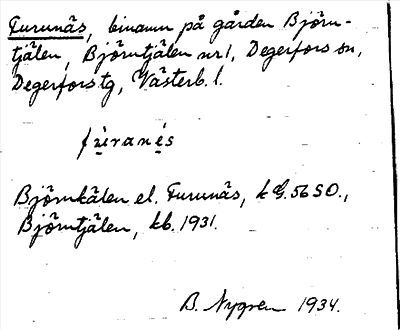 Furunäs, binamn på gården Björn-
tjälen, Björntjälen nr 1, Degerfors sn,
Degerfors tg, Västerb. l.
fu̠ranẹs
Björnkälen el. Furunäs, k G. 56 SO.,
Björntjälen, kb. 1931.
B. Nygren 1934.